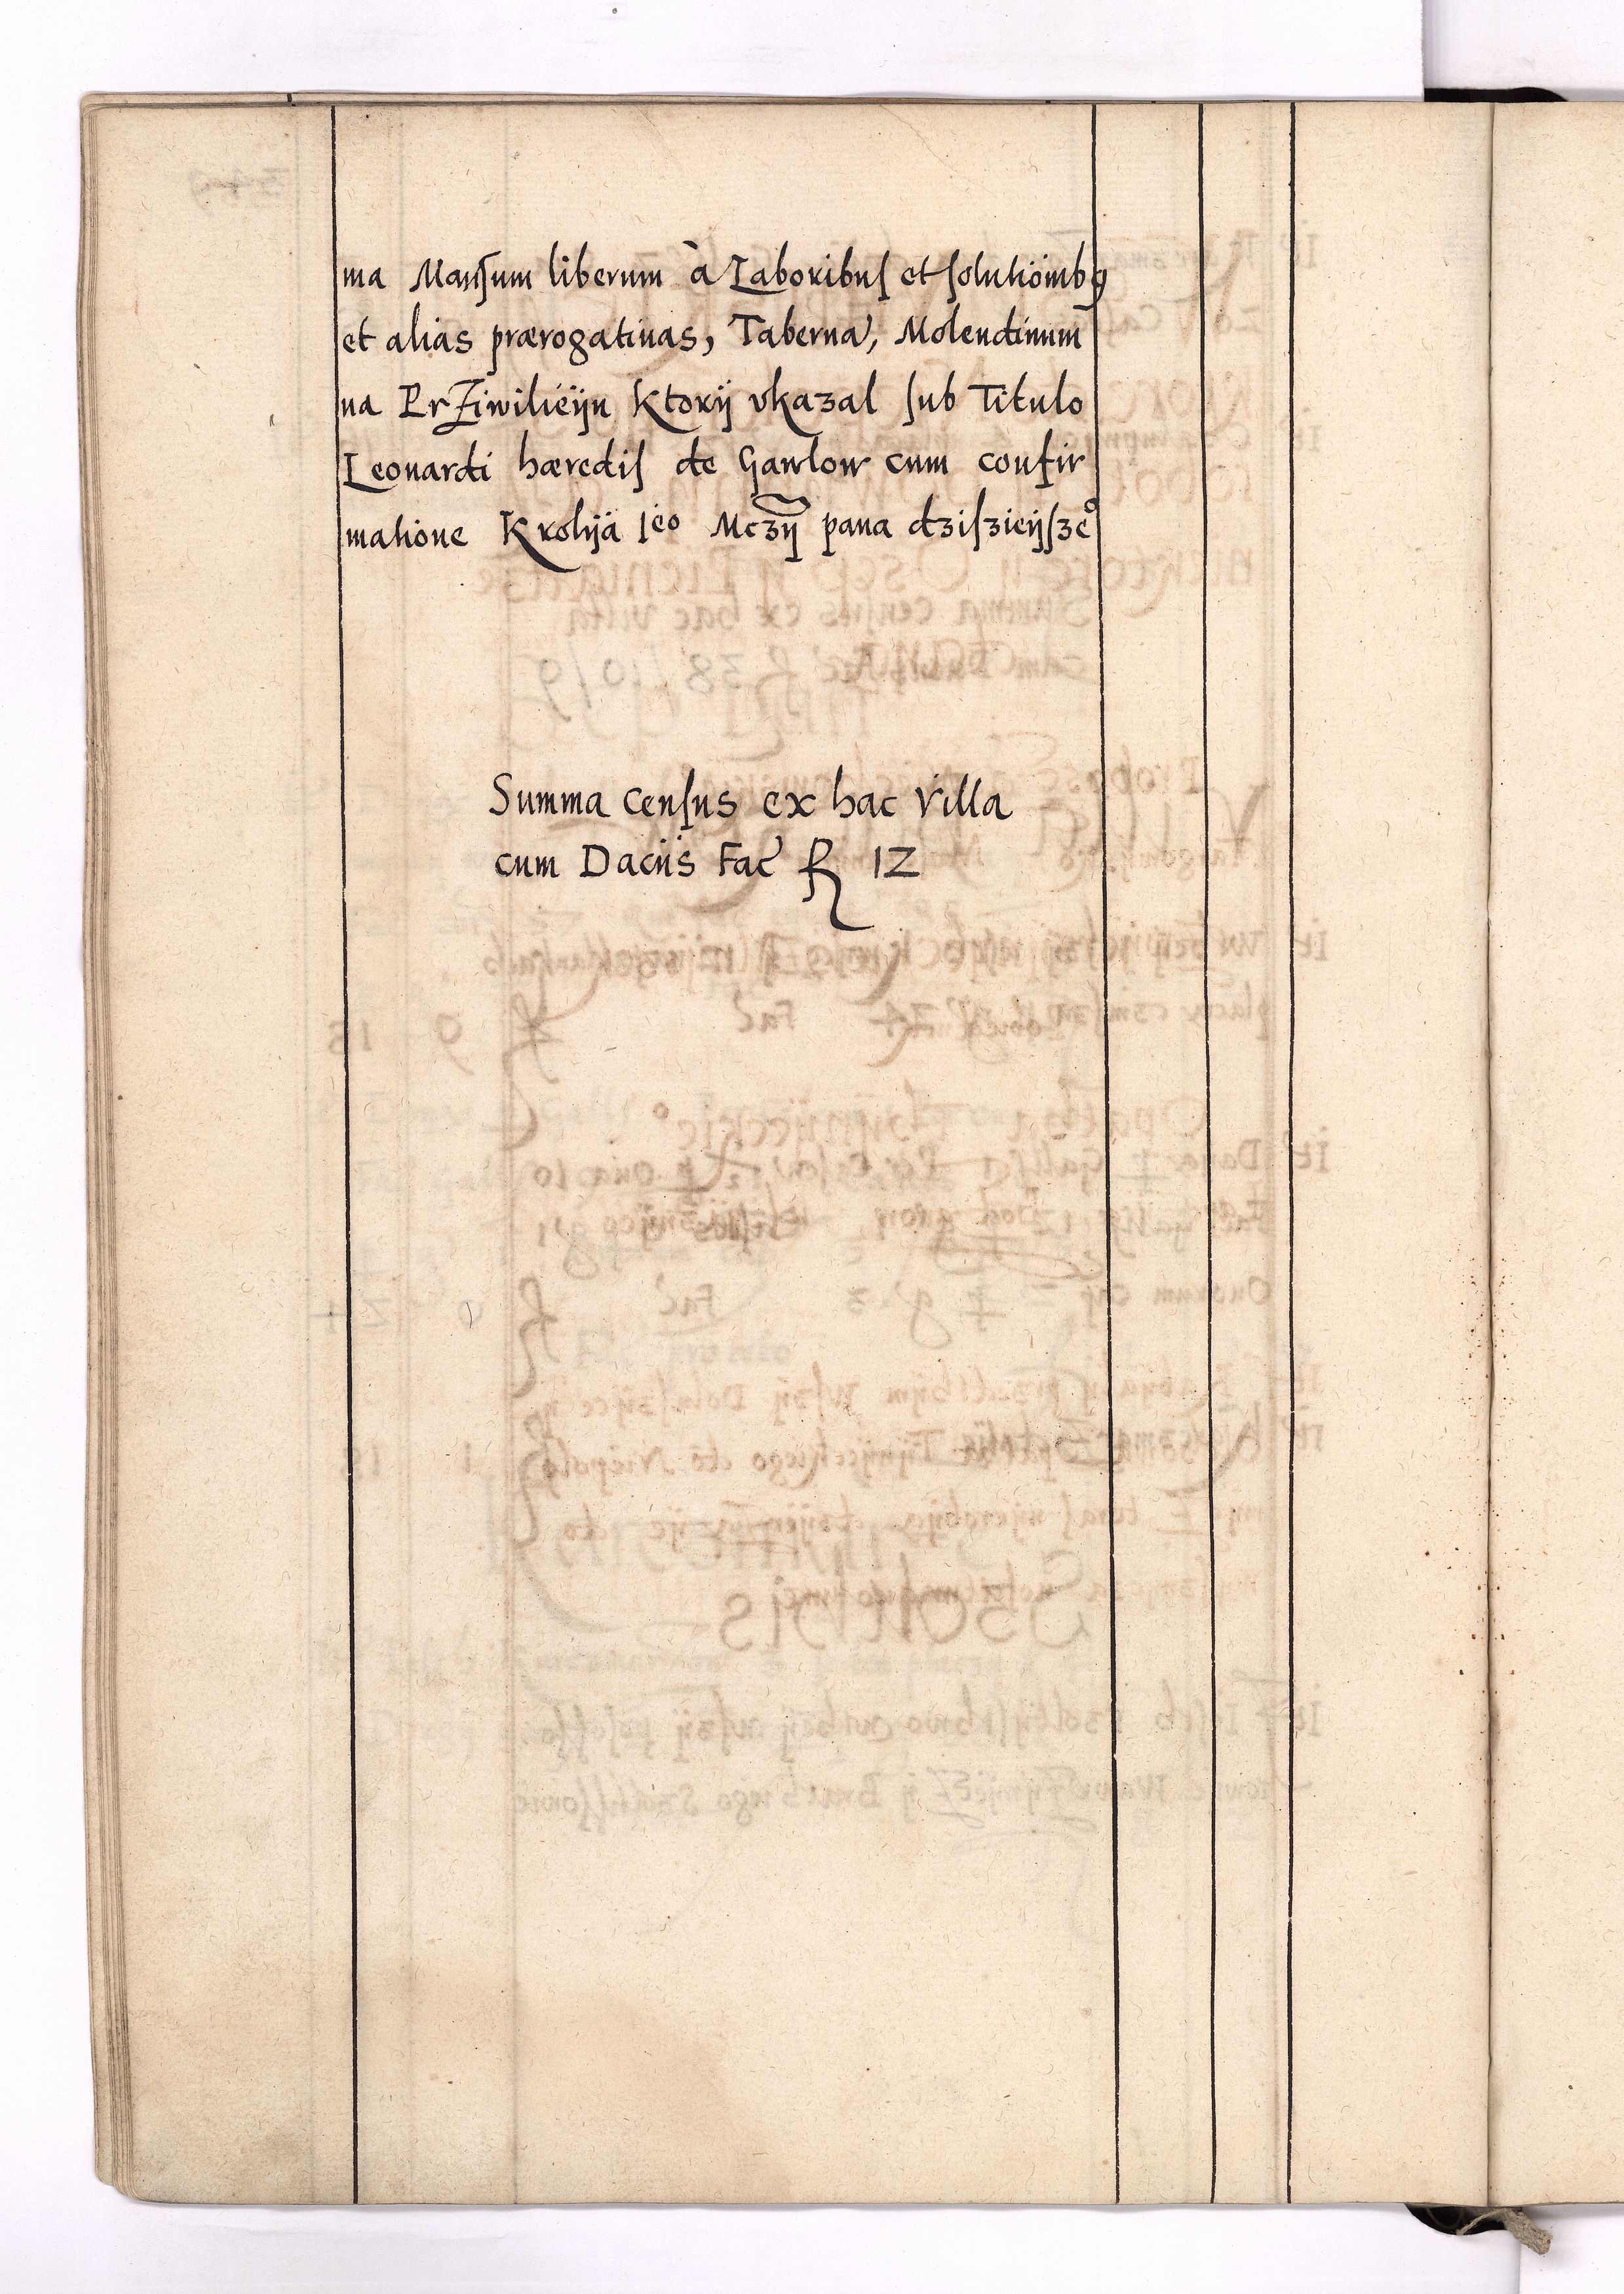 ma Manſum liberum à Laboribuſ et ſolutioïbꝯ
et alias prærogatiuas, Taberna, Molendinum
na PrZiwilieÿn Ktorÿ vkazal ſub Titulo
Leonardi hærediſ de Gawlow cum confir
matione Krolÿa Jeo Mczÿ pana dziſzieÿſze°
Summa cenſus ex hac villa
cum Daciis Fac ƒl 12